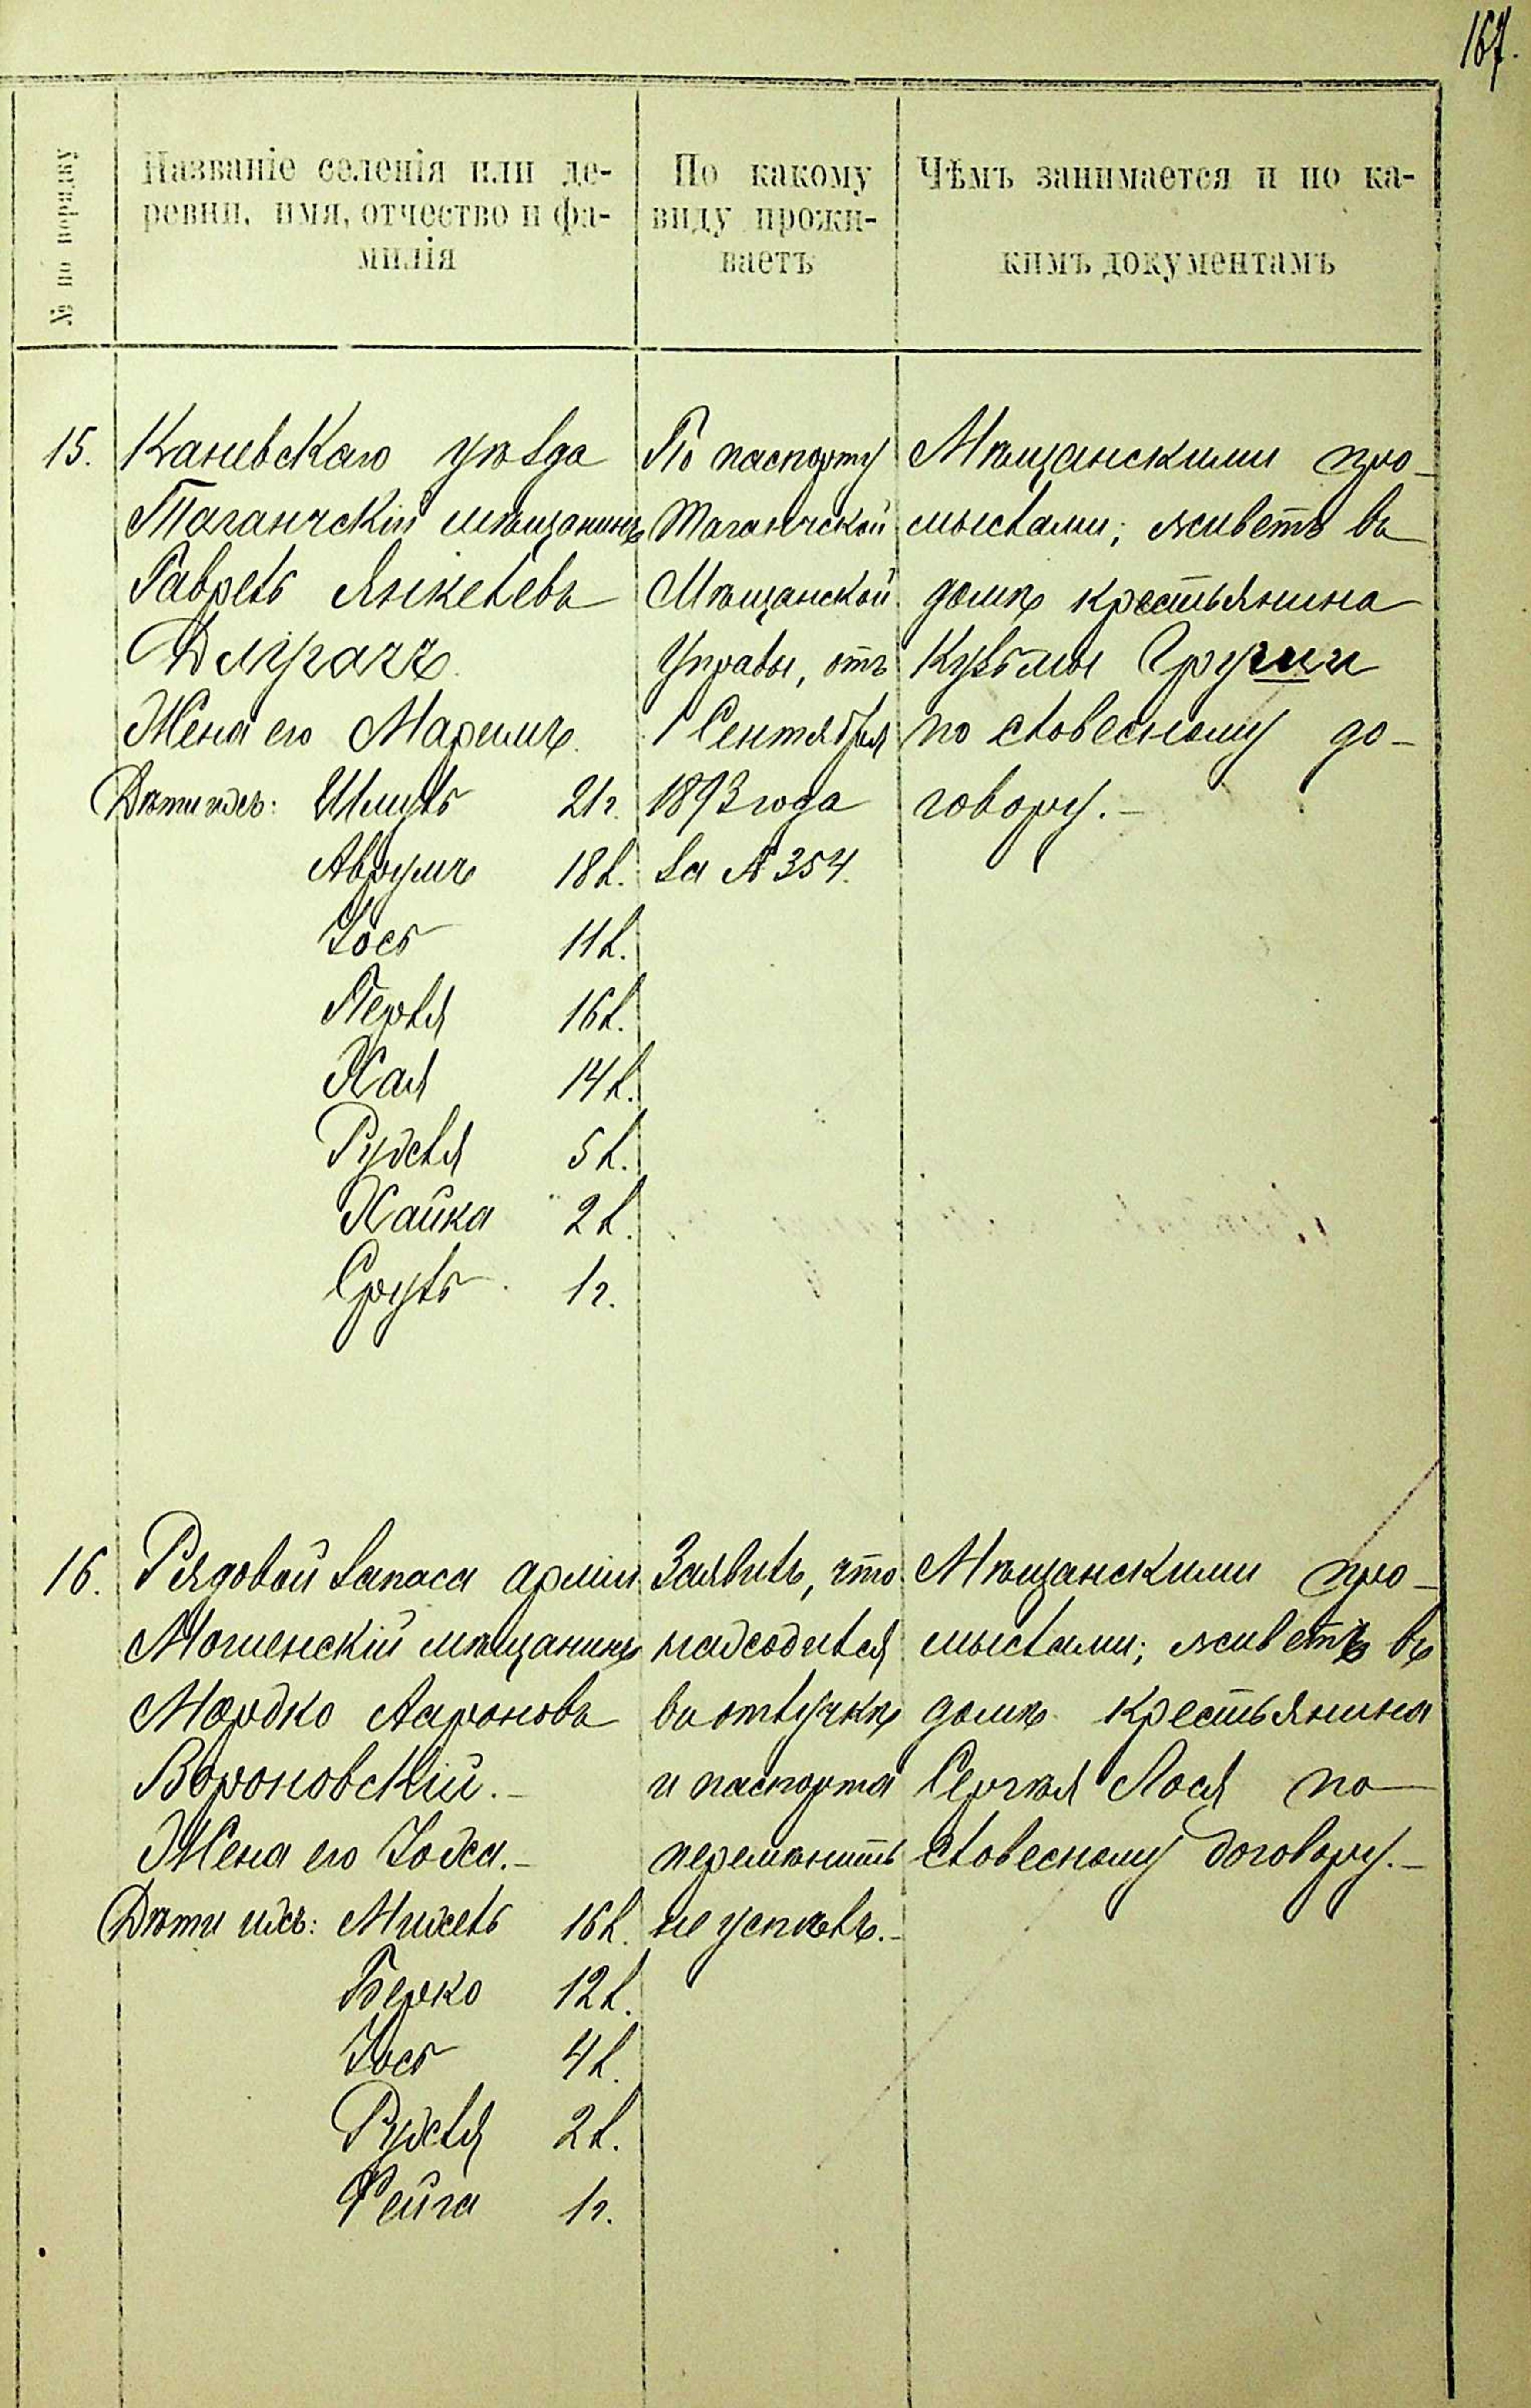 167.
№ по порядку
Названіе селенія или де-
ревни, имя, отчество и фа-
милія
По какому
виду прожи-
ваетъ
Чѣмъ занимается и по ка-
кимъ документамъ
15.
Каневскаго уѣзда
Таганчскій мѣщанинъ
Гаврель Янкелевъ
Длугачъ.
Жена его Маріимъ.
Дѣти ихъ: Шмуль 21г.
Аврумъ 18л.
Іось 11л.
Перля 16л.
Хая 14л.
Рухля 5л.
Хайка 2л.
Сруль 1г.
По паспорту
Таганчской
Мѣщанской
Управы, отъ
1 Сентября
1893 года
за № 354.
Мѣщанскими про-
мыслами; живетъ въ
домѣ крестьянина
Кузьмы
по словесному до-
говору.-
16.
Рядовой запаса арміи
Мошенскій мѣщанинъ
Мордко Аароновъ
Вороновскій.-
Жена его Ходса.-
Дѣти ихъ: Михель 16л.
Берко 12л.
Іось 4л.
Рухля 2л.
Фейга 1г.
Заявилъ, что
находился
въ отлучкѣ
и паспорта
перемѣнить
не успѣлъ.-
Мѣщанскими про-
мыслами; живетъ въ
домѣ крестьянина
Сергѣя Лося по
словесному договору.-